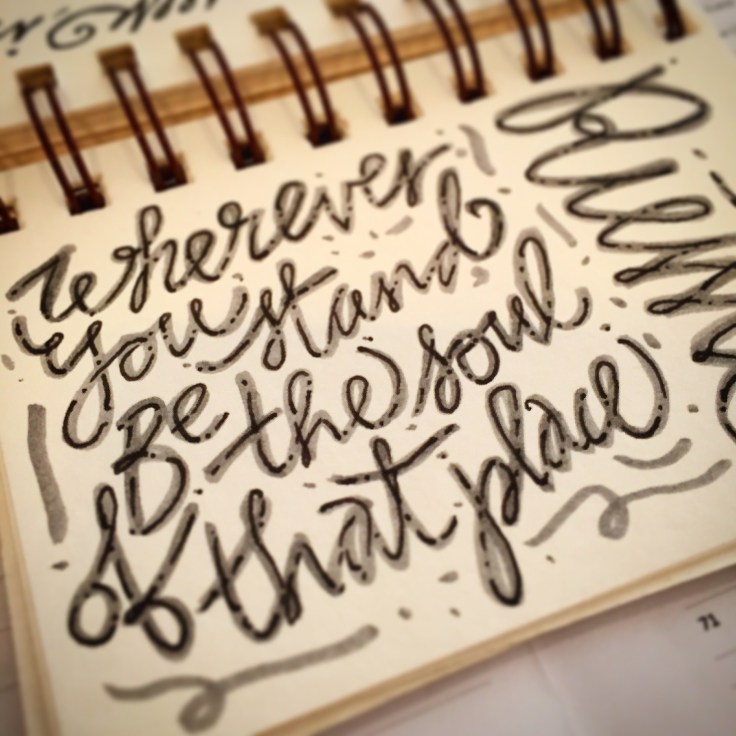 Wherever
you stand
Be the soul
of that place
Rumi
71